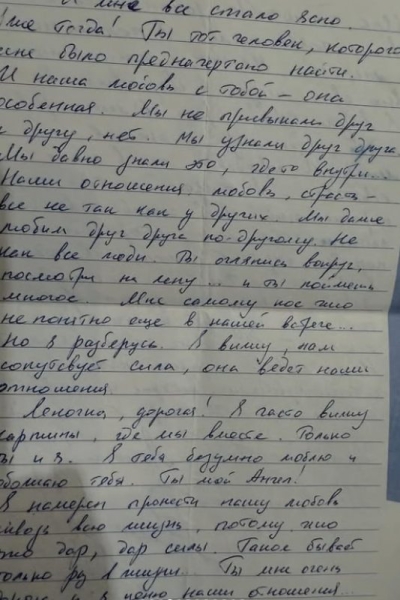 И мне все стало ясно.
Уже тогда! Ты тот человек, которого
мне было предначертано найти.
И наша любовь с тобой – она
особенная. Мы не привыкали друг
к другу, нет. Мы узнали друг друга
Мы давно знали это, где-то внутри...
Наши отношения, любовь, страсть –
все не так как у других. Мы даже
любим друг друга по-другому. Не
как все люди. Ты оглянись вокруг,
посмотри на ... и ты поймешь
многое. Мне самому пос что
не понятно еще в нашей встрече...
Но я разберусь. Я вижу, нам
сопутсвует сила, она ведет наши
отношения.
Леночка, дорогая! Я часто вижу
картины, где мы вместе. Только
ты и я. Я тебя безумно люблю и
обожаю тебя. Ты мой Ангел!
Я намерен пронести нашу любовь
сквозь всю жизнь, потому что
это дар, дар силы. Такое бывает
только раз в жизни. Ты мне очень
дорога и я ценю наши отношения...